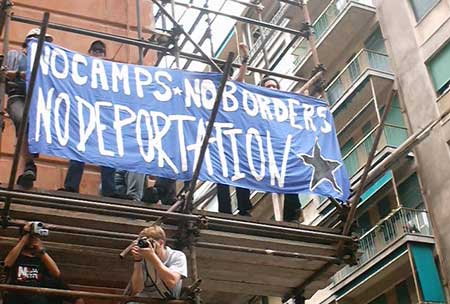 NO CAMPS ★ NO BORDERS
NO DEPORTATION